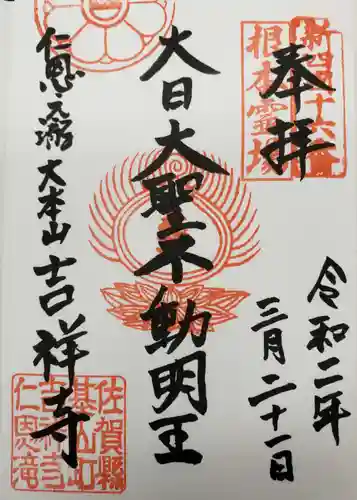 奉拝
新四国十六番
根本霊場
令和二年
三月二十一日
大日大聖不動明王
仁恩之瀧 大本山 吉祥寺
佐賀縣
基山町
吉祥寺
仁恩滝